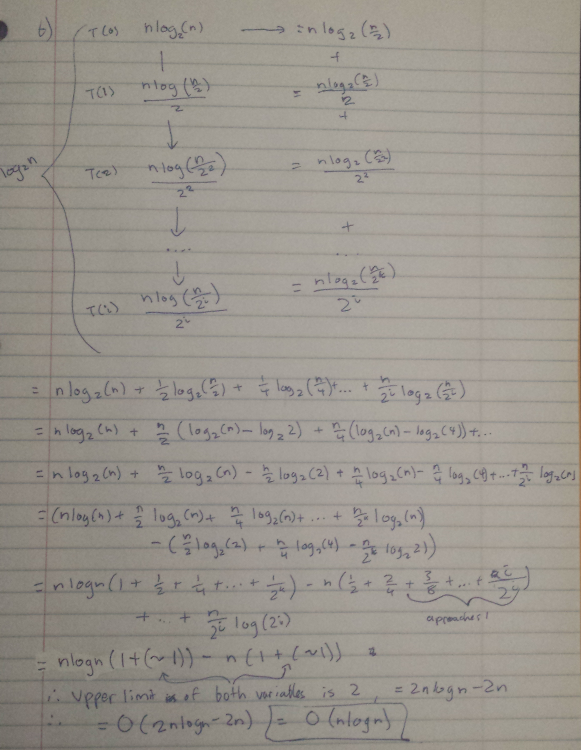 6) T(0) nlog₂(n) → = nlog₂(n/2)
+
T(1) nlog(n/2)/2 = nlog₂(n/2)/2
+
T(2) nlog(n/2²)/2² = nlog₂(n/2²)/2²
log₂n
+
.... ...
T(i) nlog(n/2ⁱ)/2ⁱ = nlog₂(n/2ᵏ)/2ⁱ
= nlog₂(n) + 1/2 log₂(n/2) + 1/4 log₂(n/4)+... + n/2ⁱ log₂(n/2ⁱ)
= nlog₂(n) + n/2 (log₂(n) - log₂2) + n/4 (log₂(n) - log₂(4))+...
= nlog₂(n) + n/2 log₂(n) - n/2 log₂(2) + n/4 log₂(n) - n/4 log₂(4)+...+ n/2ⁱ log₂(n)
= (nlog(n) + n/2 log₂(n) + n/4 log₂(n) + ... + n/2ᵏ log₂(n))
- (n/2 log₂(2) + n/4 log₂(4) - n/2ᵏ log₂2))
= nlogn(1 + 1/2 + 1/4 + ... + 1/2ᵏ) - n(1/2 + 2/4 + 3/8 + ... + i/2ⁱ)
+ ... + n/2ⁱ log(2ⁱ) aproaches 1
= nlogn(1+(~1)) - n(1+(~1))
∴ upper limit of both variables is 2, = 2nlogn-2n
∴ = O(2nlogn-2n) = O(nlogn)